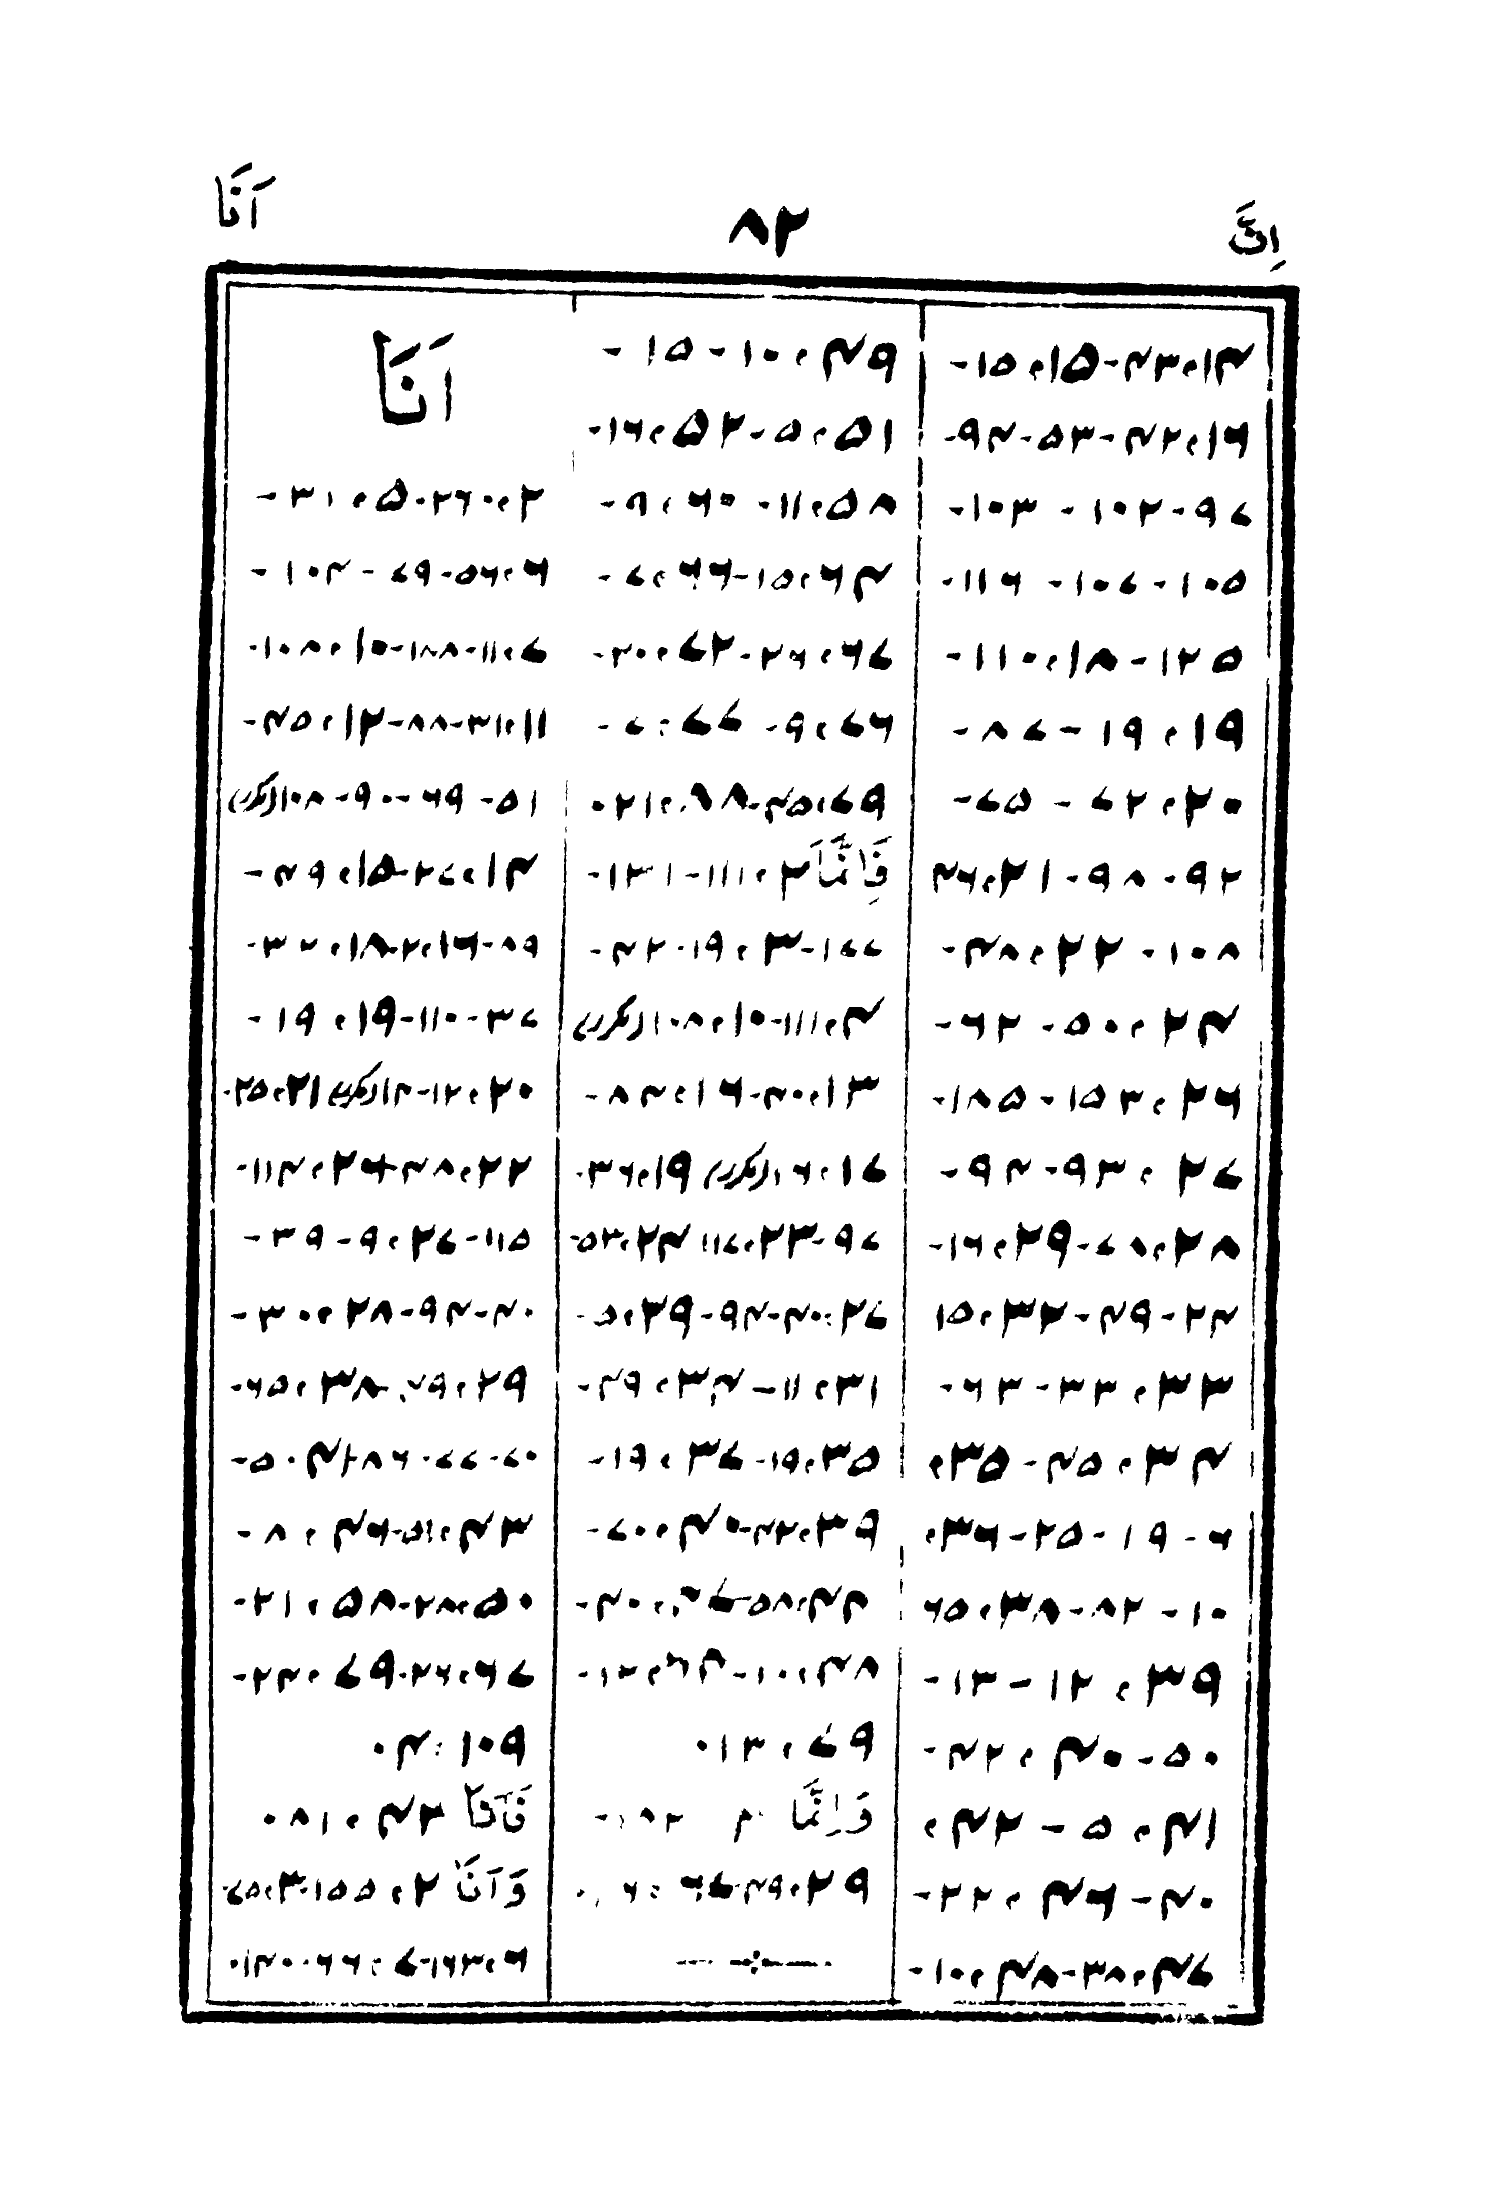 اِنَّ
۸۲
اَنَا
۱۴، ۴۳-۱۵، ۱۵-
۱۶، ۴۲-۵۳-۹۴-
۹۷-۱۰۲-۱۰۳-
۱۰۵-۱۰۷-۱۱۶-
۱۲۵-۱۸، ۱۱۰-
۱۹، ۱۹-۸۷-
۲۰، ۷۲-۷۵-
۹۲-۹۸-۲۱، ۴۶
۱۰۸-۲۲، ۴۸-
۲۴، ۵۰-۶۲-
۲۶، ۱۵۳-۱۸۵-
۲۷، ۹۳-۹۴-
۲۸، ۷۸-۲۹، ۱۶-
۲۴-۴۹-۳۲، ۱۵
۳۳، ۳۳-۶۳-
۳۴، ۴۵-۳۵،
۶-۱۹-۲۵-۳۶،
۱۰-۸۲-۳۸، ۶۵
۳۹، ۱۲-۱۳-
۵۰-۴۰، ۴۲-
۴۱، ۵-۴۲،
۴۰-۴۶، ۲۲-
۴۷، ۳۸-۴۸، ۱۰-
۴۹، ۱۰-۱۵-
۵۱، ۵-۵۲، ۱۶-
۵۸، ۱۱-۶۰، ۹-
۶۴، ۱۵-۶۶، ۷-
۶۷، ۲۶-۷۲، ۲۰-
۷۶، ۹-۷۷، ۷-
۷۹، ۴۵-۸۸، ۲۱-
فَاِنَّمَا ۲، ۱۱۱-۱۳۱-
۱۷۷-۳، ۱۹-۴۲-
۴، ۱۱۱-۱۰، ۱۰۸ (مکرر)
۱۳، ۴۰-۱۶، ۸۴-
۱۷، (مکرر) ۱۹، ۳۶-
۹۷-۲۳، ۱۱۷ ۲۴، ۵۳-
۲۷، ۴۰-۹۲-۲۹، ۵-
۳۱، ۱۱-۳۴، ۴۹-
۳۵، ۱۹-۳۷، ۱۹-
۳۹، ۴۲-۴۰، ۷۰-
۴۴، ۵۸-۴۷، ۴۰-
۴۸، ۱۰-۶۴، ۱۲-
۷۹، ۱۳-
وَاِنَّمَا ۱۸۲-
۲۹، ۴۹-۶۷،
اَنَا
۲، ۲۶-۵، ۳۱-
۶، ۵۶-۷۹-۱۰۴-
۷، ۱۱-۱۸۸-۱۰، ۱۰۸-
۱۱، ۳۱-۸۸-۱۲، ۴۵-
۵۱-۶۹-۹۰-۱۰۸ (مکرر)
۱۴، ۲۷-۱۵، ۴۹-
۸۹-۱۶، ۲-۱۸،
۳۷-۱۱۰-۱۹، ۱۹-
۲۰، ۱۲-۱۴ (مکرر) ۲۱، ۲۵-
۲۲، ۴۸-۲۶، ۱۱۴-
۱۱۵-۲۷، ۹-۳۹-
۴۰-۹۲-۲۸، ۳۰-
۲۹، ۴۹-۳۸، ۶۵-
۷۰-۷۷-۸۶-۴۰، ۵۰-
۴۳، ۵۱-۴۶، ۸-
۵۰، ۲۸-۵۸، ۲۱-
۶۷، ۲۶-۷۹، ۲۴-
۱۰۹، ۴-
فَاَنَا ۴۳، ۸۱-
وَاَنَا ۲، ۱۵۵-۳، ۷۵-
۶، ۱۶۳-۷، ۶۶-۱۴۰-